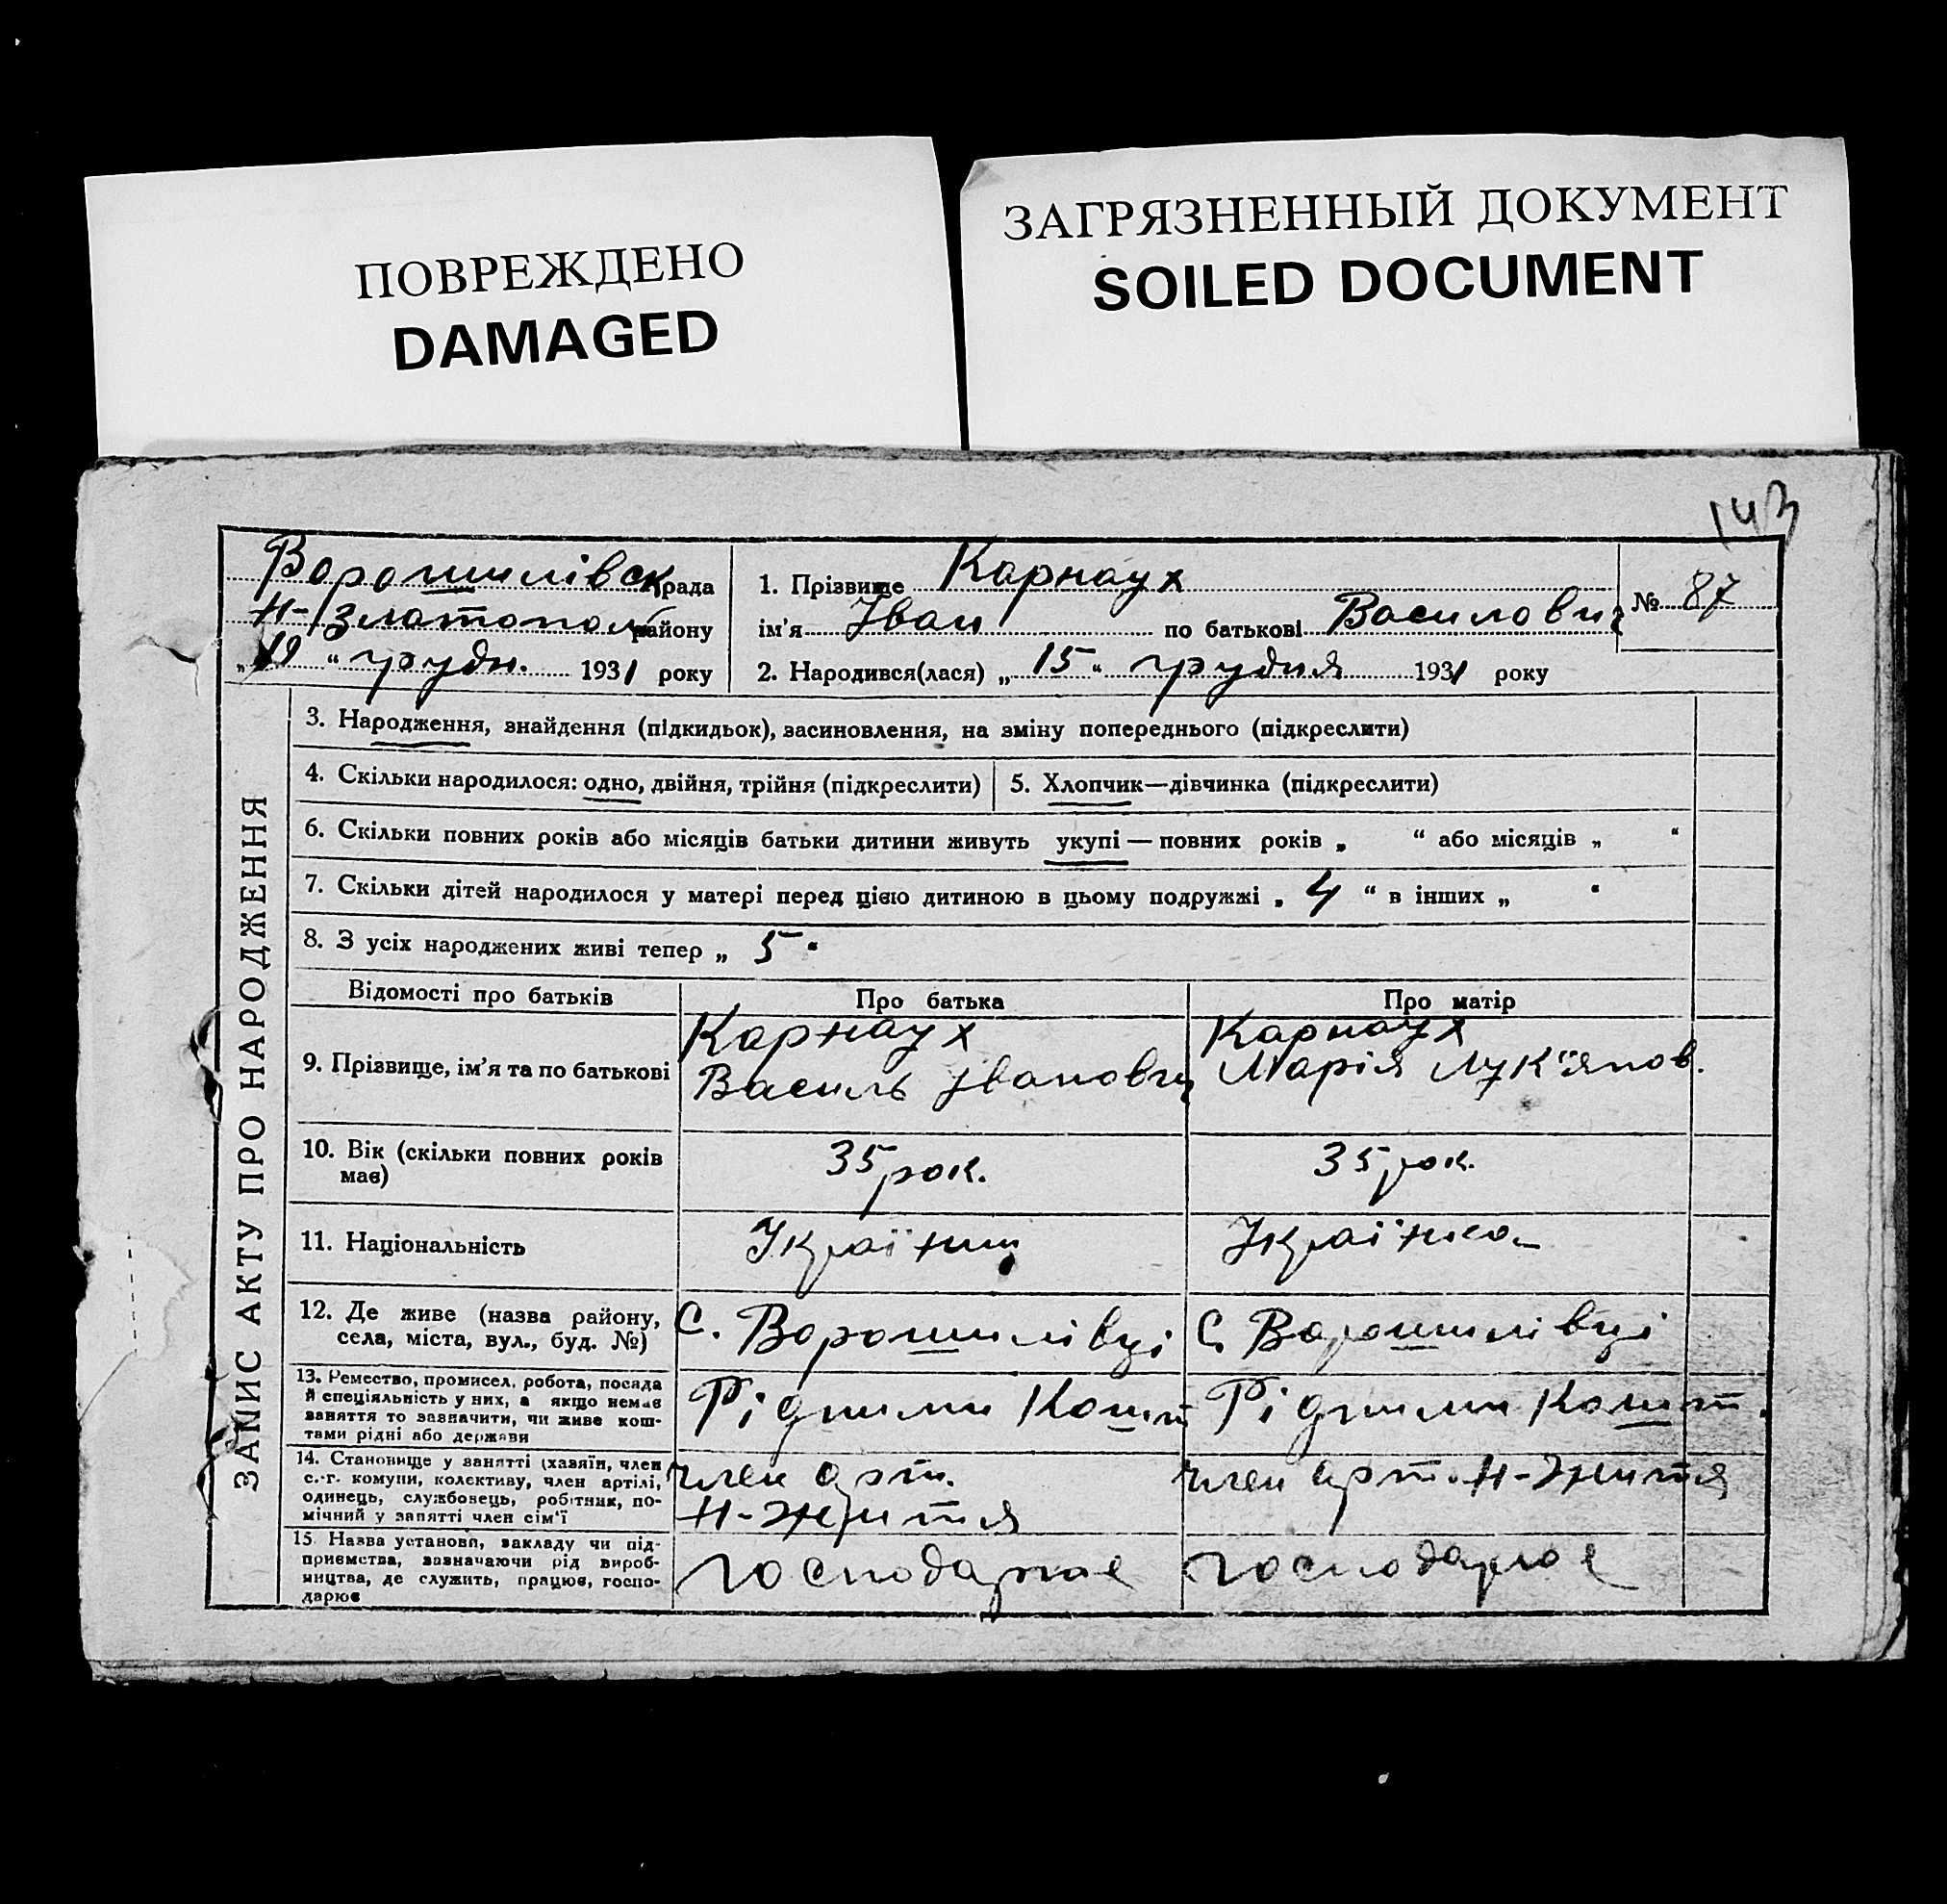 ПОВРЕЖДЕНО
DAMAGED
ЗАГРЯЗНЕННЫЙ ДОКУМЕНТ
SOILED DOCUMENT
143
Ворошилівск рада
Н-Златопол району
„19“ грудн. 1931 року
1. Прізвище Карнаух
ім’я Іван по батькові Василович
№ 87
2. Народився(лася) „15“ грудня 1931 року
ЗАПИС АКТУ ПРО НАРОДЖЕННЯ
3. Народження, знайдення (підкидьок), засиновлення, на зміну попереднього (підкреслити)
4. Скільки народилося: одно, двійня, трійня (підкреслити)
5. Хлопчик—дівчинка (підкреслити)
6. Скільки повних років або місяців батьки дитини живуть укупі — повних років „ “ або місяців „ “
7. Скільки дітей народилося у матері перед цією дитиною в цьому подружжі „ 4 “ в інших „ “
8. З усіх народжених живі тепер „ 5 “
Відомості про батьків
Про батька
Про матір
9. Прізвище, ім’я та по батькові
Карнаух
Василь Іванович
Карнаух
Марія Лук"янов.
10. Вік (скільки повних років
має)
35 рок.
35 рок.
11. Національність
Українц
Українка
12. Де живе (назва району,
села, міста, вул., буд. №)
с. Ворошилівці
с. Ворошилівці
13. Ремество, промисел, робота, посада
й спеціяльність у них, а якщо немає
заняття то зазначити, чи живе кош-
тами рідні або держави
Рідними Кошт
Рідними Кошт.
14. Становище у занятті (хазяїн, член
с.-г. комуни, колективу, член артілі,
одинець, службовець, робітник, по-
мічний у занятті член сім’ї
член арт.
Н-Життя
член арт. Н-Життя
15. Назва установи, закладу чи під-
приємства, зазначаючи рід вироб-
ництва, де служить, працює, госпо-
дарює
господарює
господарює